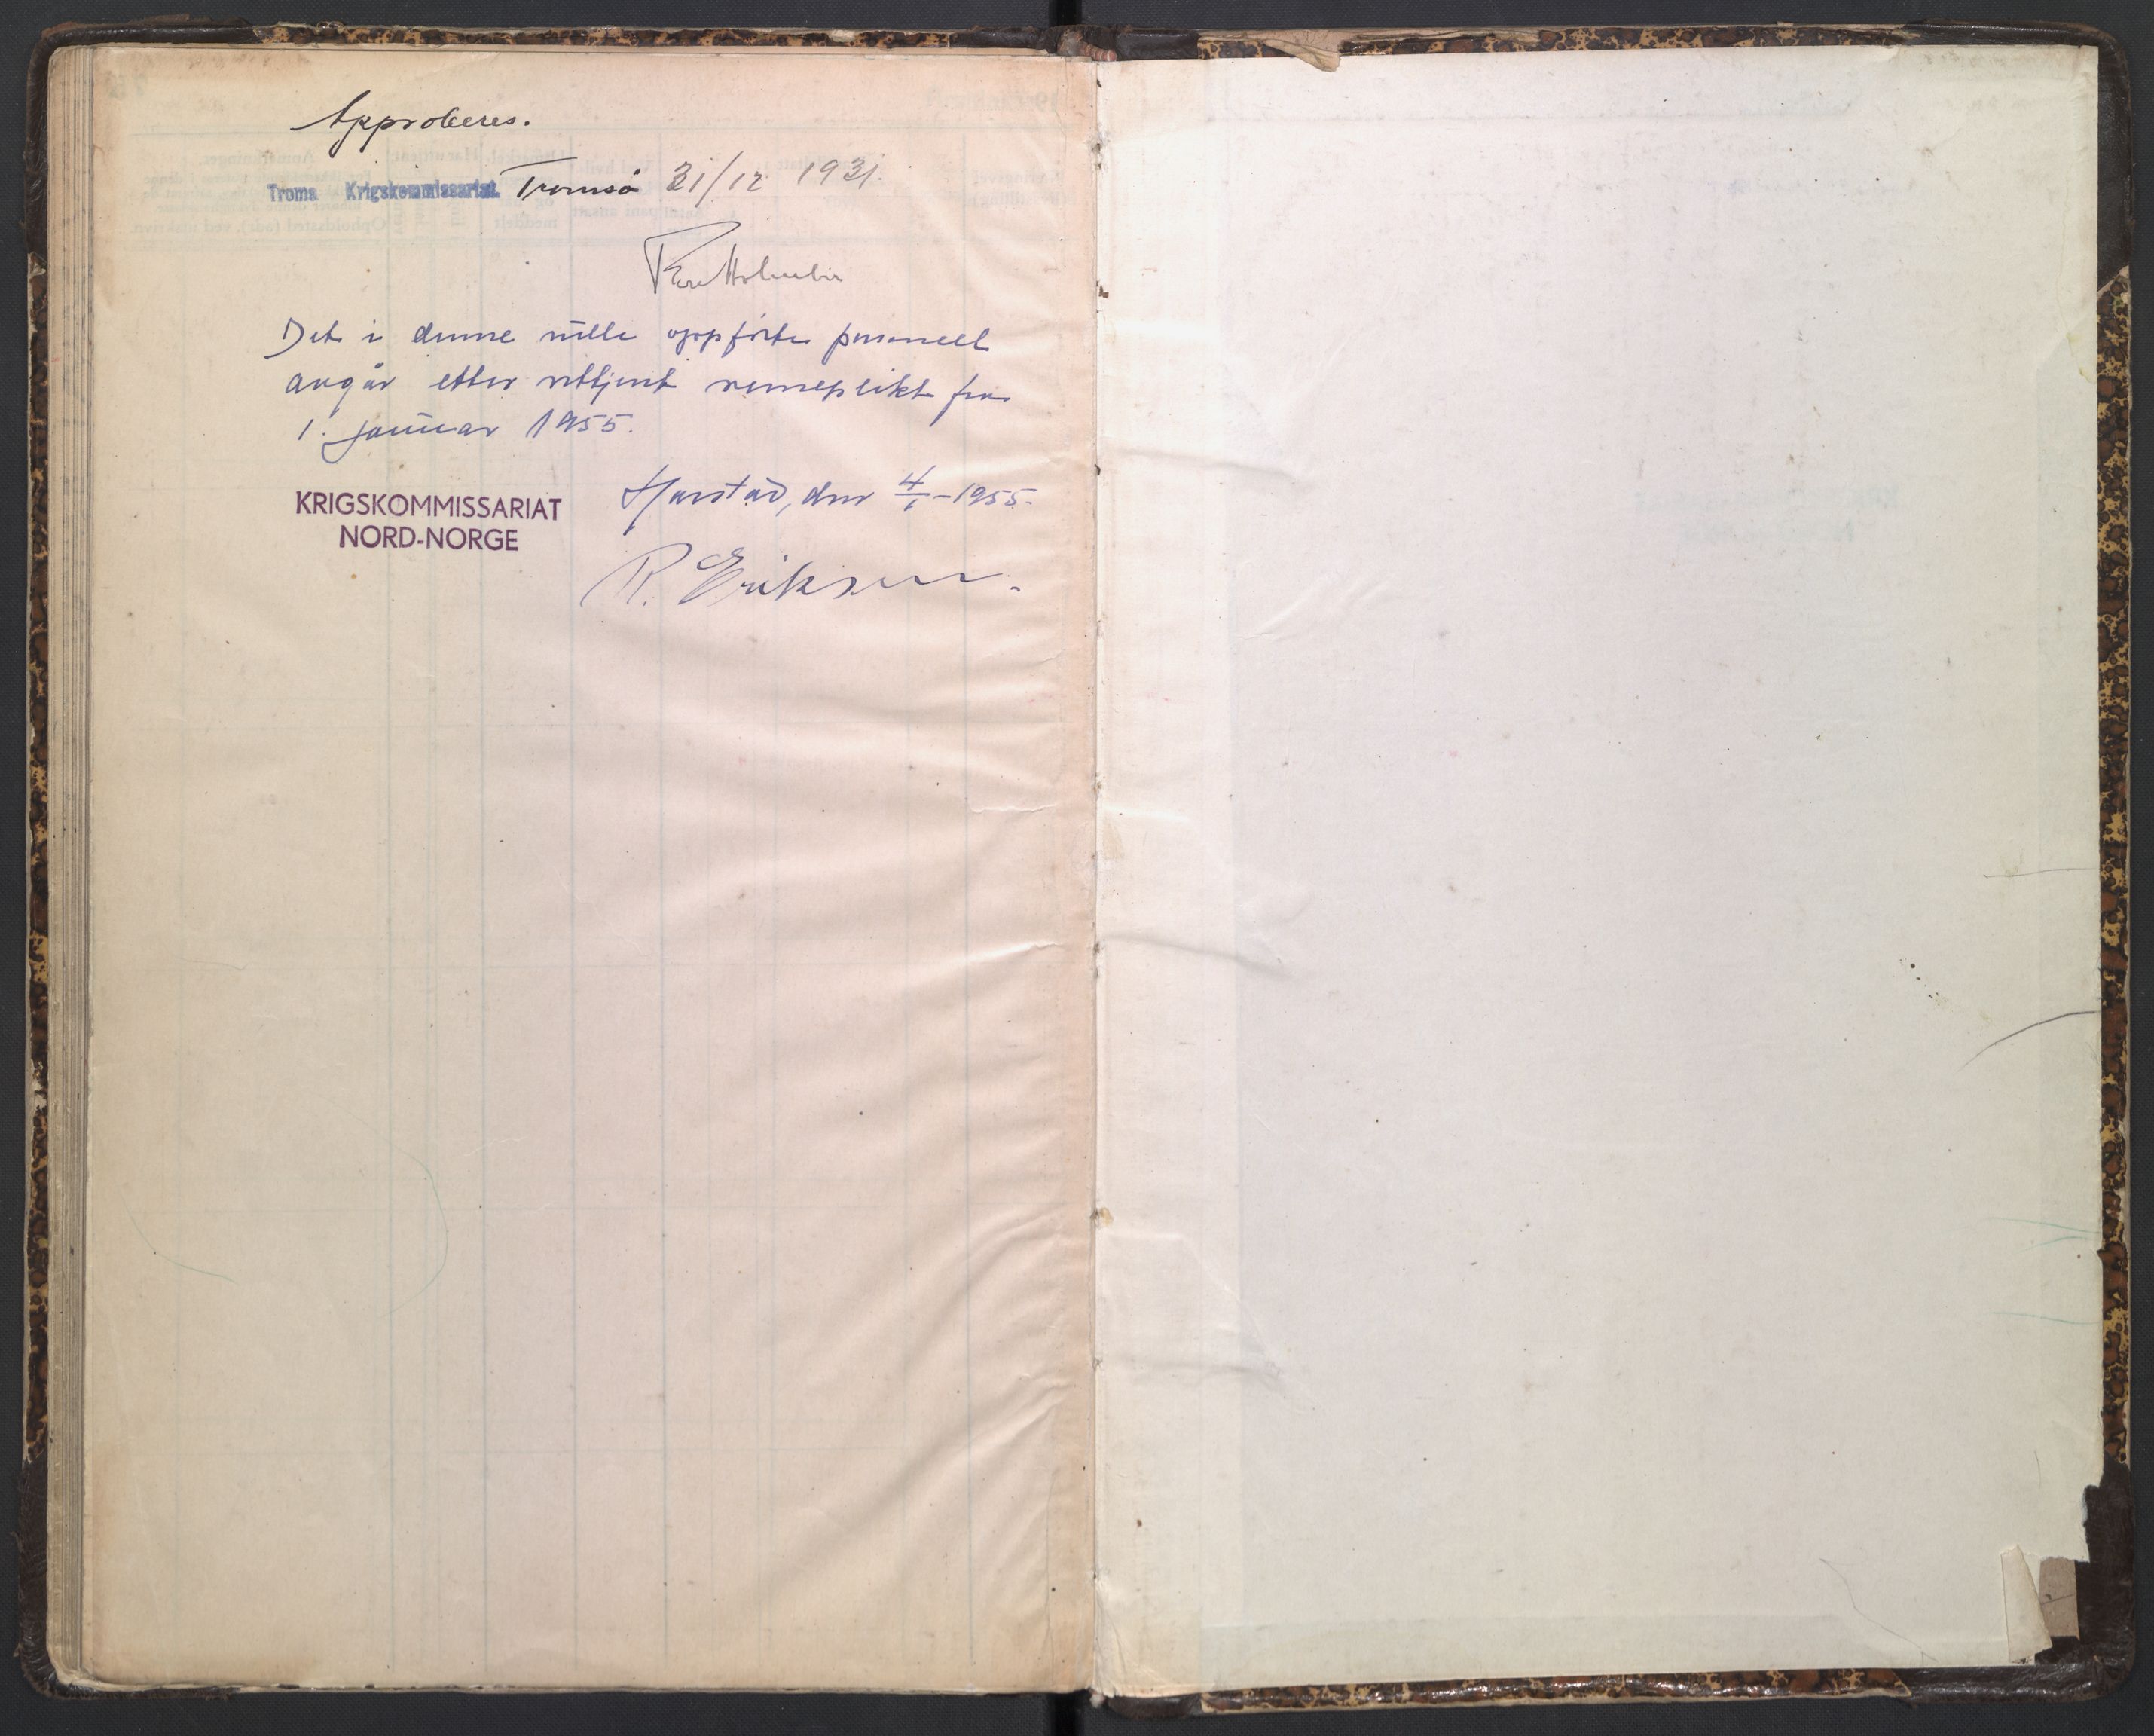 Approberes.
Troms Krigskommissariat. Tromsø 31/12 1931.
Det i denne rulle oppførte personell
avgår etter uttjent verneplikt fra
1. januar 1955.
KRIGSKOMMISSARIAT
NORD-NORGE
Harstad, den 4/1-1955.
R. Eriksen.